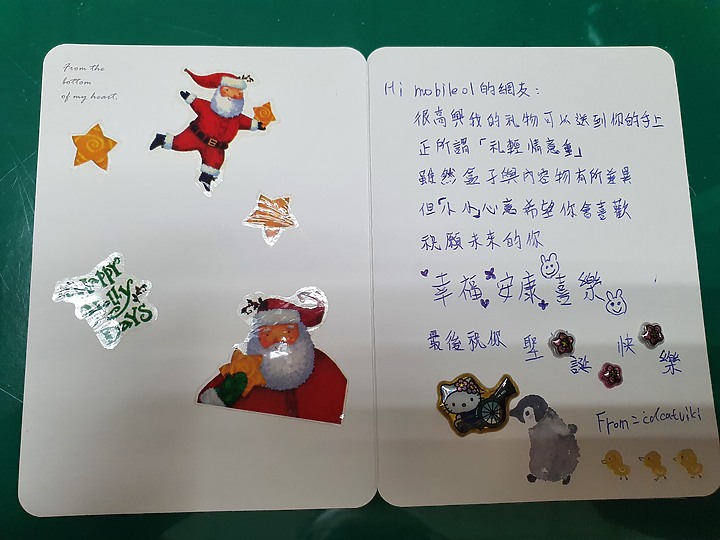 From the
bottom
of my heart.
Happy
Holly
DAYS
Hi mobile01的網友:
很高興我的礼物可以送到你的手上
正所謂「礼輕情意重」
雖然盒子與內容物有所差異
但「小小」心意希望你會喜歡
祝願未來的你
幸福 安康 喜樂
最後祝你 聖誕快樂
From=icdcatviki